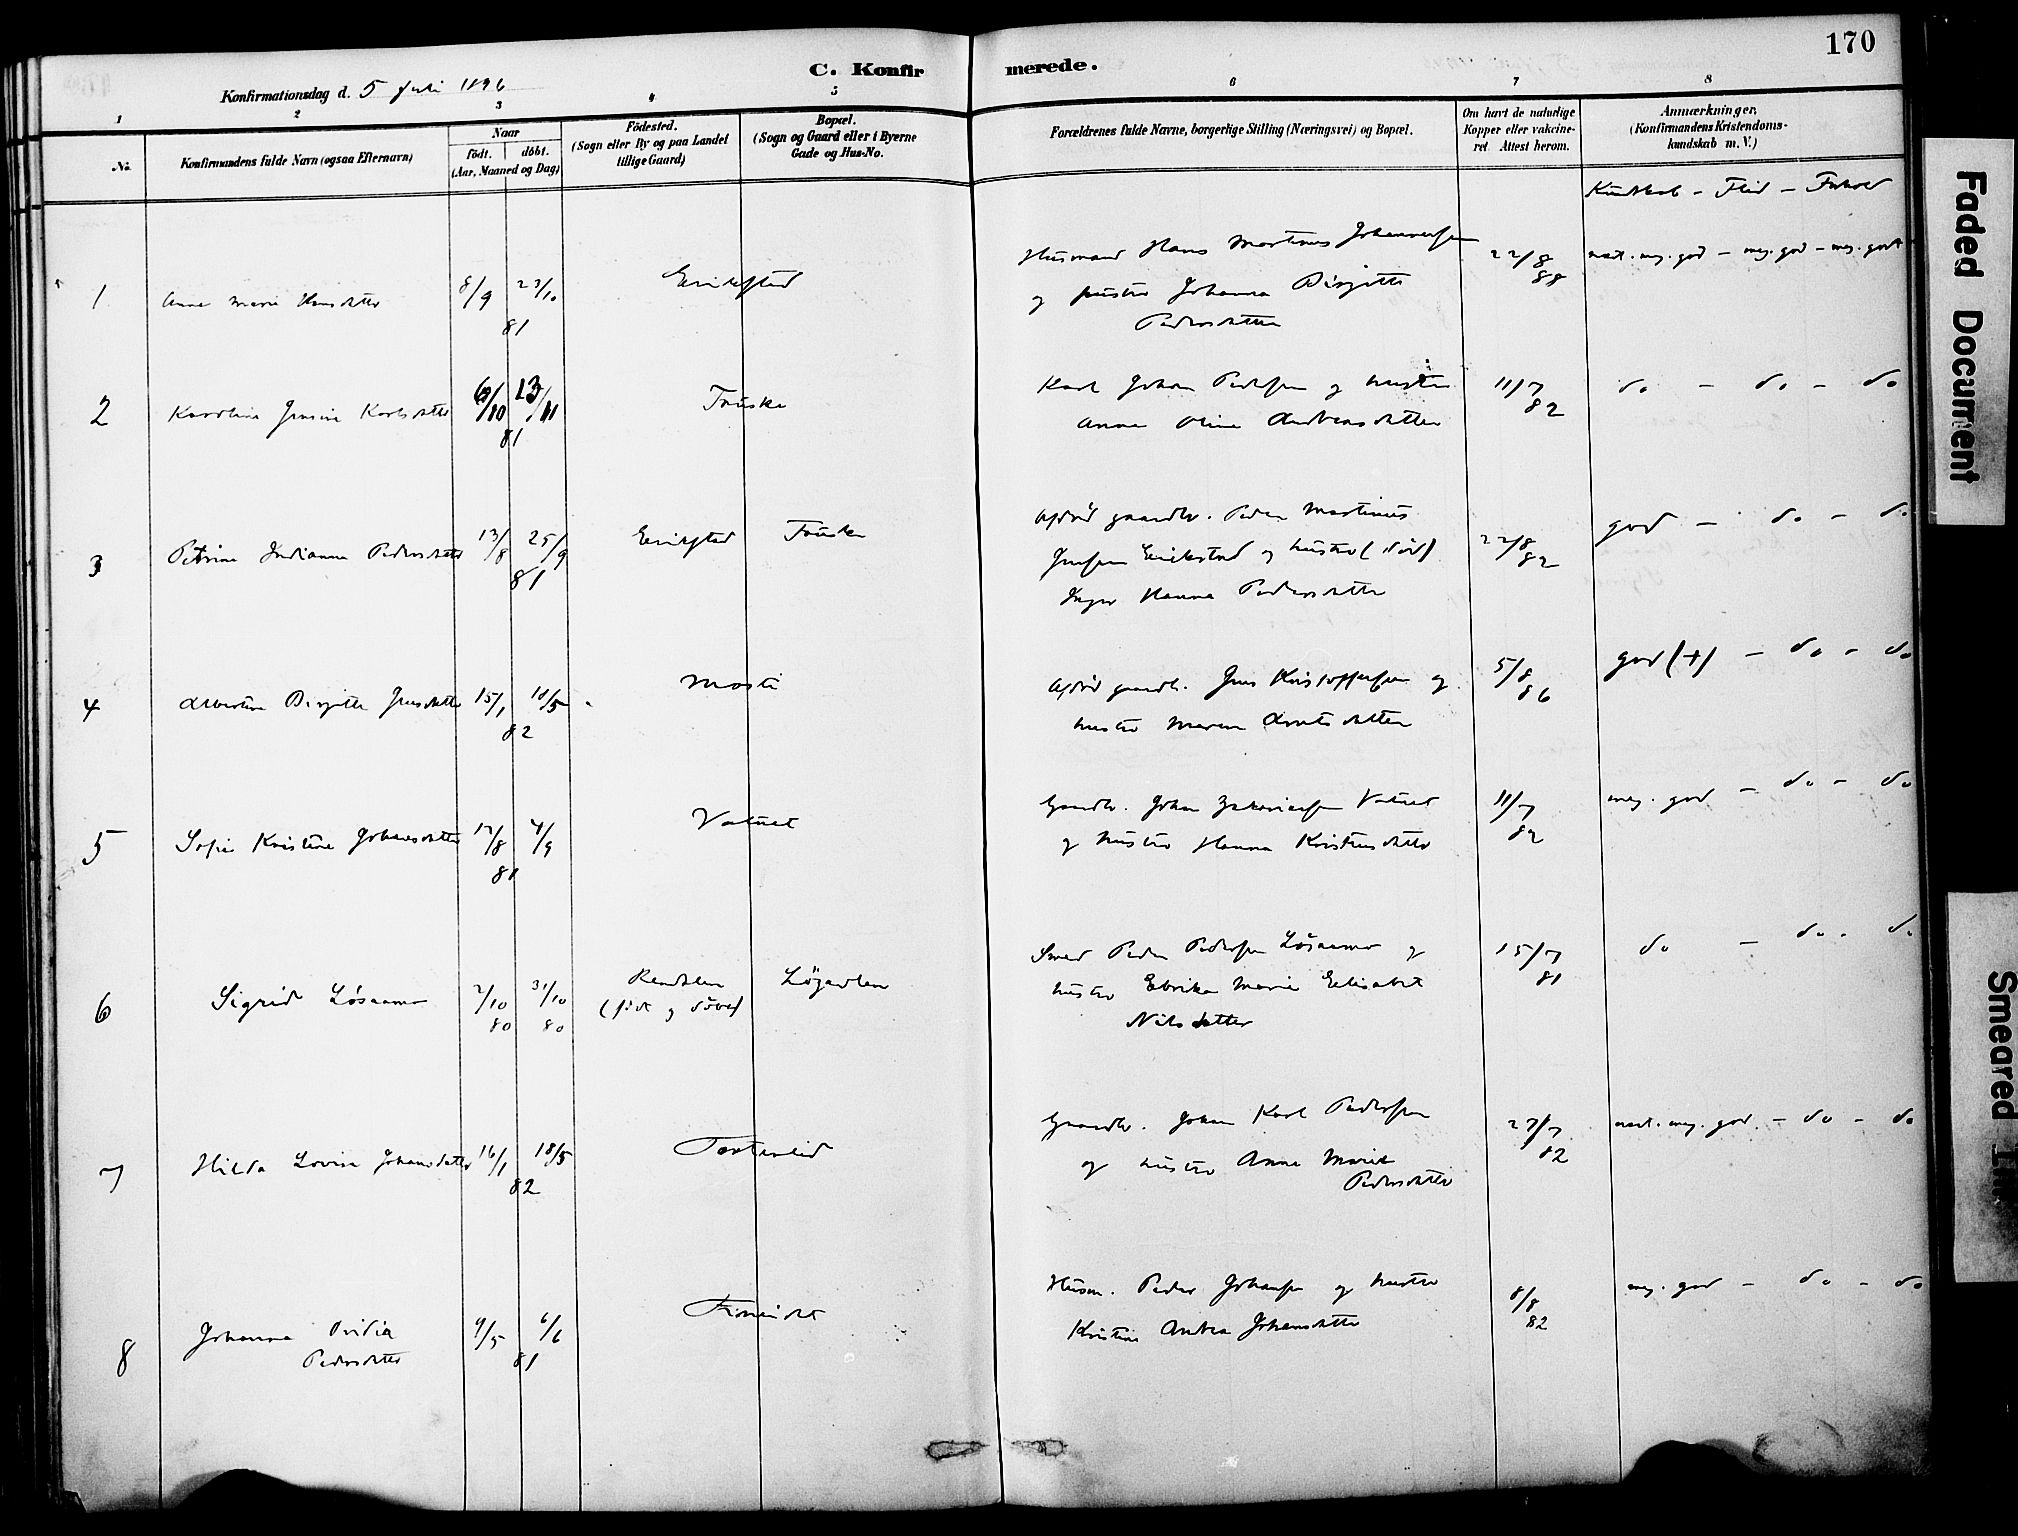 170
C. Konfirmerede.
Konfirmationsdag d. 5 Juli 1896
1 2 3 4 5 6 7 8
No.
Konfirmandens fulde Navn (ogsaa Efternavn)
Naar
födt. döbt.
(Aar, Maaned og Dag)
Födested.
(Sogn eller By og paa Landet
tillige Gaard)
Bopæl.
(Sogn og Gaard eller i Byerne
Gade og Hus-No.
Forældrenes fulde Navne, borgerlige Stilling (Næringsvei) og Bopæl.
Om havt de naturlige
Kopper eller vakcine-
ret. Attest herom.
Anmærkninger,
(Konfirmandens Kristendoms-
kundskab m. V.)
Kundskab - Flid - Forhold
1 Anna Marie Hansdatter 8/9 23/10 81
Erikstad
Husmand Hans Martinus Johannessen
og hustru Johanna Birgitte
Pedersdatter
22/8 88
næst. meg. god - meg. god - meg. godt
2 Karoline Jensine Karlsdatter 6/10 13/11 81
Fauske
Karl Johan Pedersen og hustru
Anne Oline Andreasdatter
11/7 82
do - do - do
3 Petrine Indianna Pedersdatter 13/8 25/9 81
Erikstad Fauske
Afdød gaardbr. Peder Martinus
Jensen Erikstad og hustru (død)
Inger Hanna Pedersdatter
22/8 82
god - do - do
4 Albertine Birgitte Jensdatter 15/1 18/5 82
Mosti
Afdød gaardb. Jens Kristoffersen og
hustru Maren Arntsdatter
5/8 86
god (+) - do - do
5 Sofie Kristine Johansdatter 17/8 4/9 81
Vatnet
Gaardbr. Johan Zakariassen Vatnet
og hustru Hanna Kristensdatter
11/7 82
meg. god - do - do
6 Sigrid Løsaamo 2/10 80 31/10 80
(født og døbt)
Smed Peder Pedersen Løsaamo og
hustru Marie Elisabet
Nilsdatter
15/7 81
do - do - do
7 Hilda Lovise Johansdatter 16/1 18/5 82
Gaardbr. Johan Karl Pedersen
og hustru Anne Marie
Pedersdatter
27/7 82
næst. meg. god. - do - do
8 Johanna
Pedersdatter 9/5 6/6 81
Finneidet
Husm. Peder Johansen og hustru
Kristine Andrea Johansdatter
8/8 82
meg. god - do - do
Faded Document
Smeared Ink